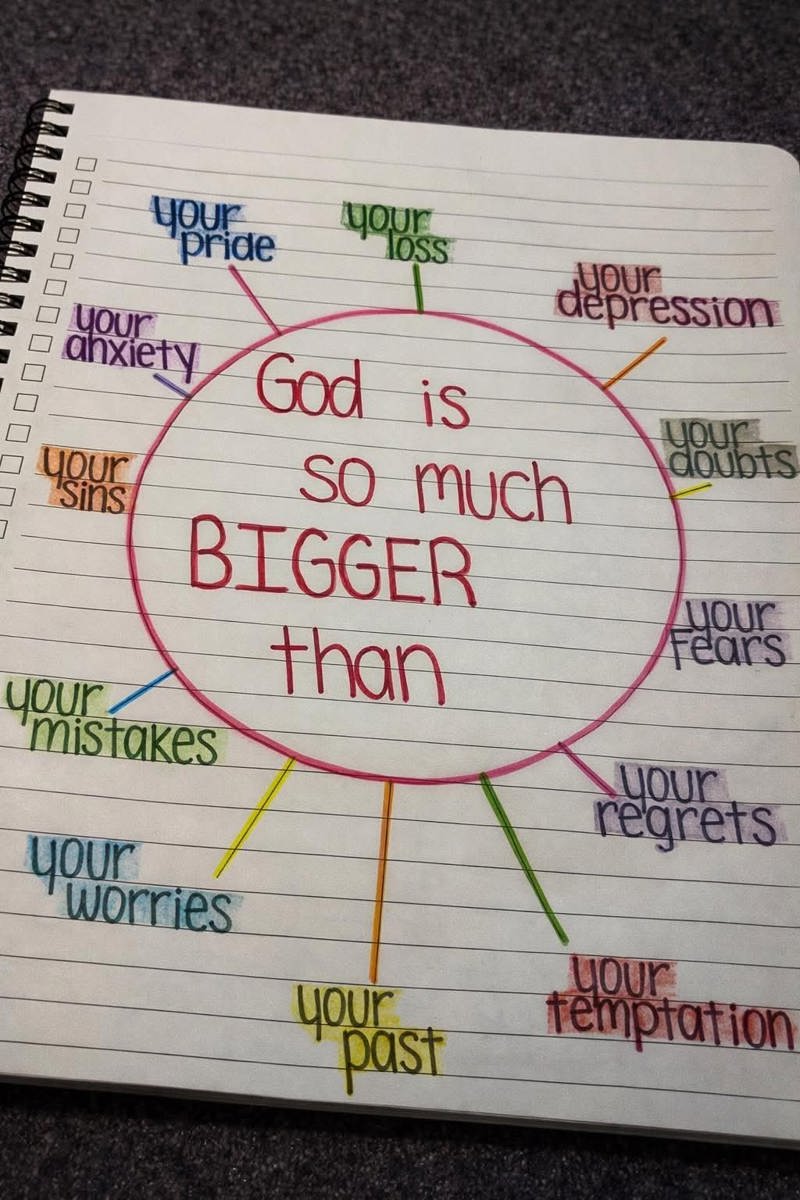 God is
so much
BIGGER
than
your
pride
your
loss
your
depression
your
doubts
your
Fears
your
regrets
your
temptation
your
past
your
worries
your
mistakes
your
sins
your
anxiety